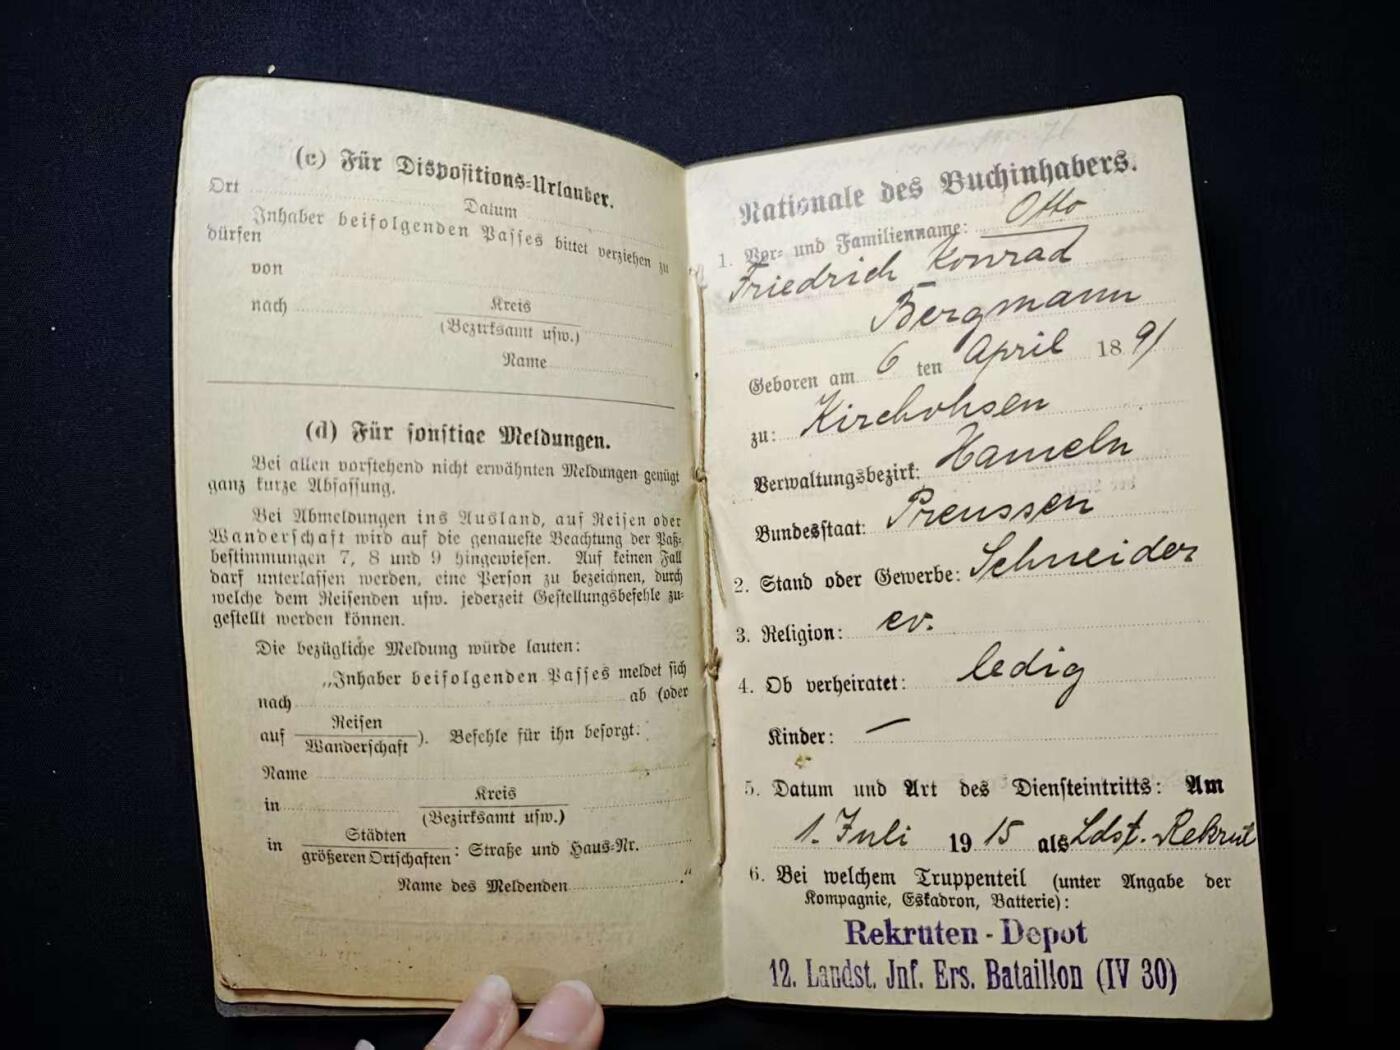 (c) Für Dispositions-Urlauber.
Ort Datum
Inhaber beifolgenden Passes bittet verziehen zu
dürfen
von
nach Kreis
(Bezirksamt usw.)
Name
(d) Für sonstige Meldungen.
Bei allen vorstehend nicht erwähnten Meldungen genügt
ganz kurze Abfassung.
Bei Abmeldungen ins Ausland, auf Reisen oder
Wanderschaft wird auf die genaueste Beachtung der Paß-
bestimmungen 7, 8 und 9 hingewiesen. Auf keinen Fall
darf unterlassen werden, eine Person zu bezeichnen, durch
welche dem Reisenden usw. jederzeit Gestellungsbefehle zu-
gestellt werden können.
Die bezügliche Meldung würde lauten:
„Inhaber beifolgenden Passes meldet sich
nach ab (oder
auf Reisen
Wanderschaft). Befehle für ihn besorgt:
Name
in Kreis
(Bezirksamt usw.)
in Städten
größeren Ortschaften: Straße und Haus-Nr.
Name des Meldenden "
Nationale des Buchinhabers.
1. Vor- und Familienname: Otto
Friedrich Konrad
Bergmann
Geboren am 6 ten April 1891
zu: Kirchohsen
Verwaltungsbezirk: Hameln
Bundesstaat: Preussen
2. Stand oder Gewerbe: Schneider
3. Religion: ev.
4. Ob verheiratet: ledig
Kinder: —
5. Datum und Art des Diensteintritts: Am
1. Juli 1915 als Ldst. Rekrut
6. Bei welchem Truppenteil (unter Angabe der
Kompagnie, Eskadron, Batterie):
Rekruten-Depot
12. Landst. Jnf. Ers. Bataillon (IV 30)